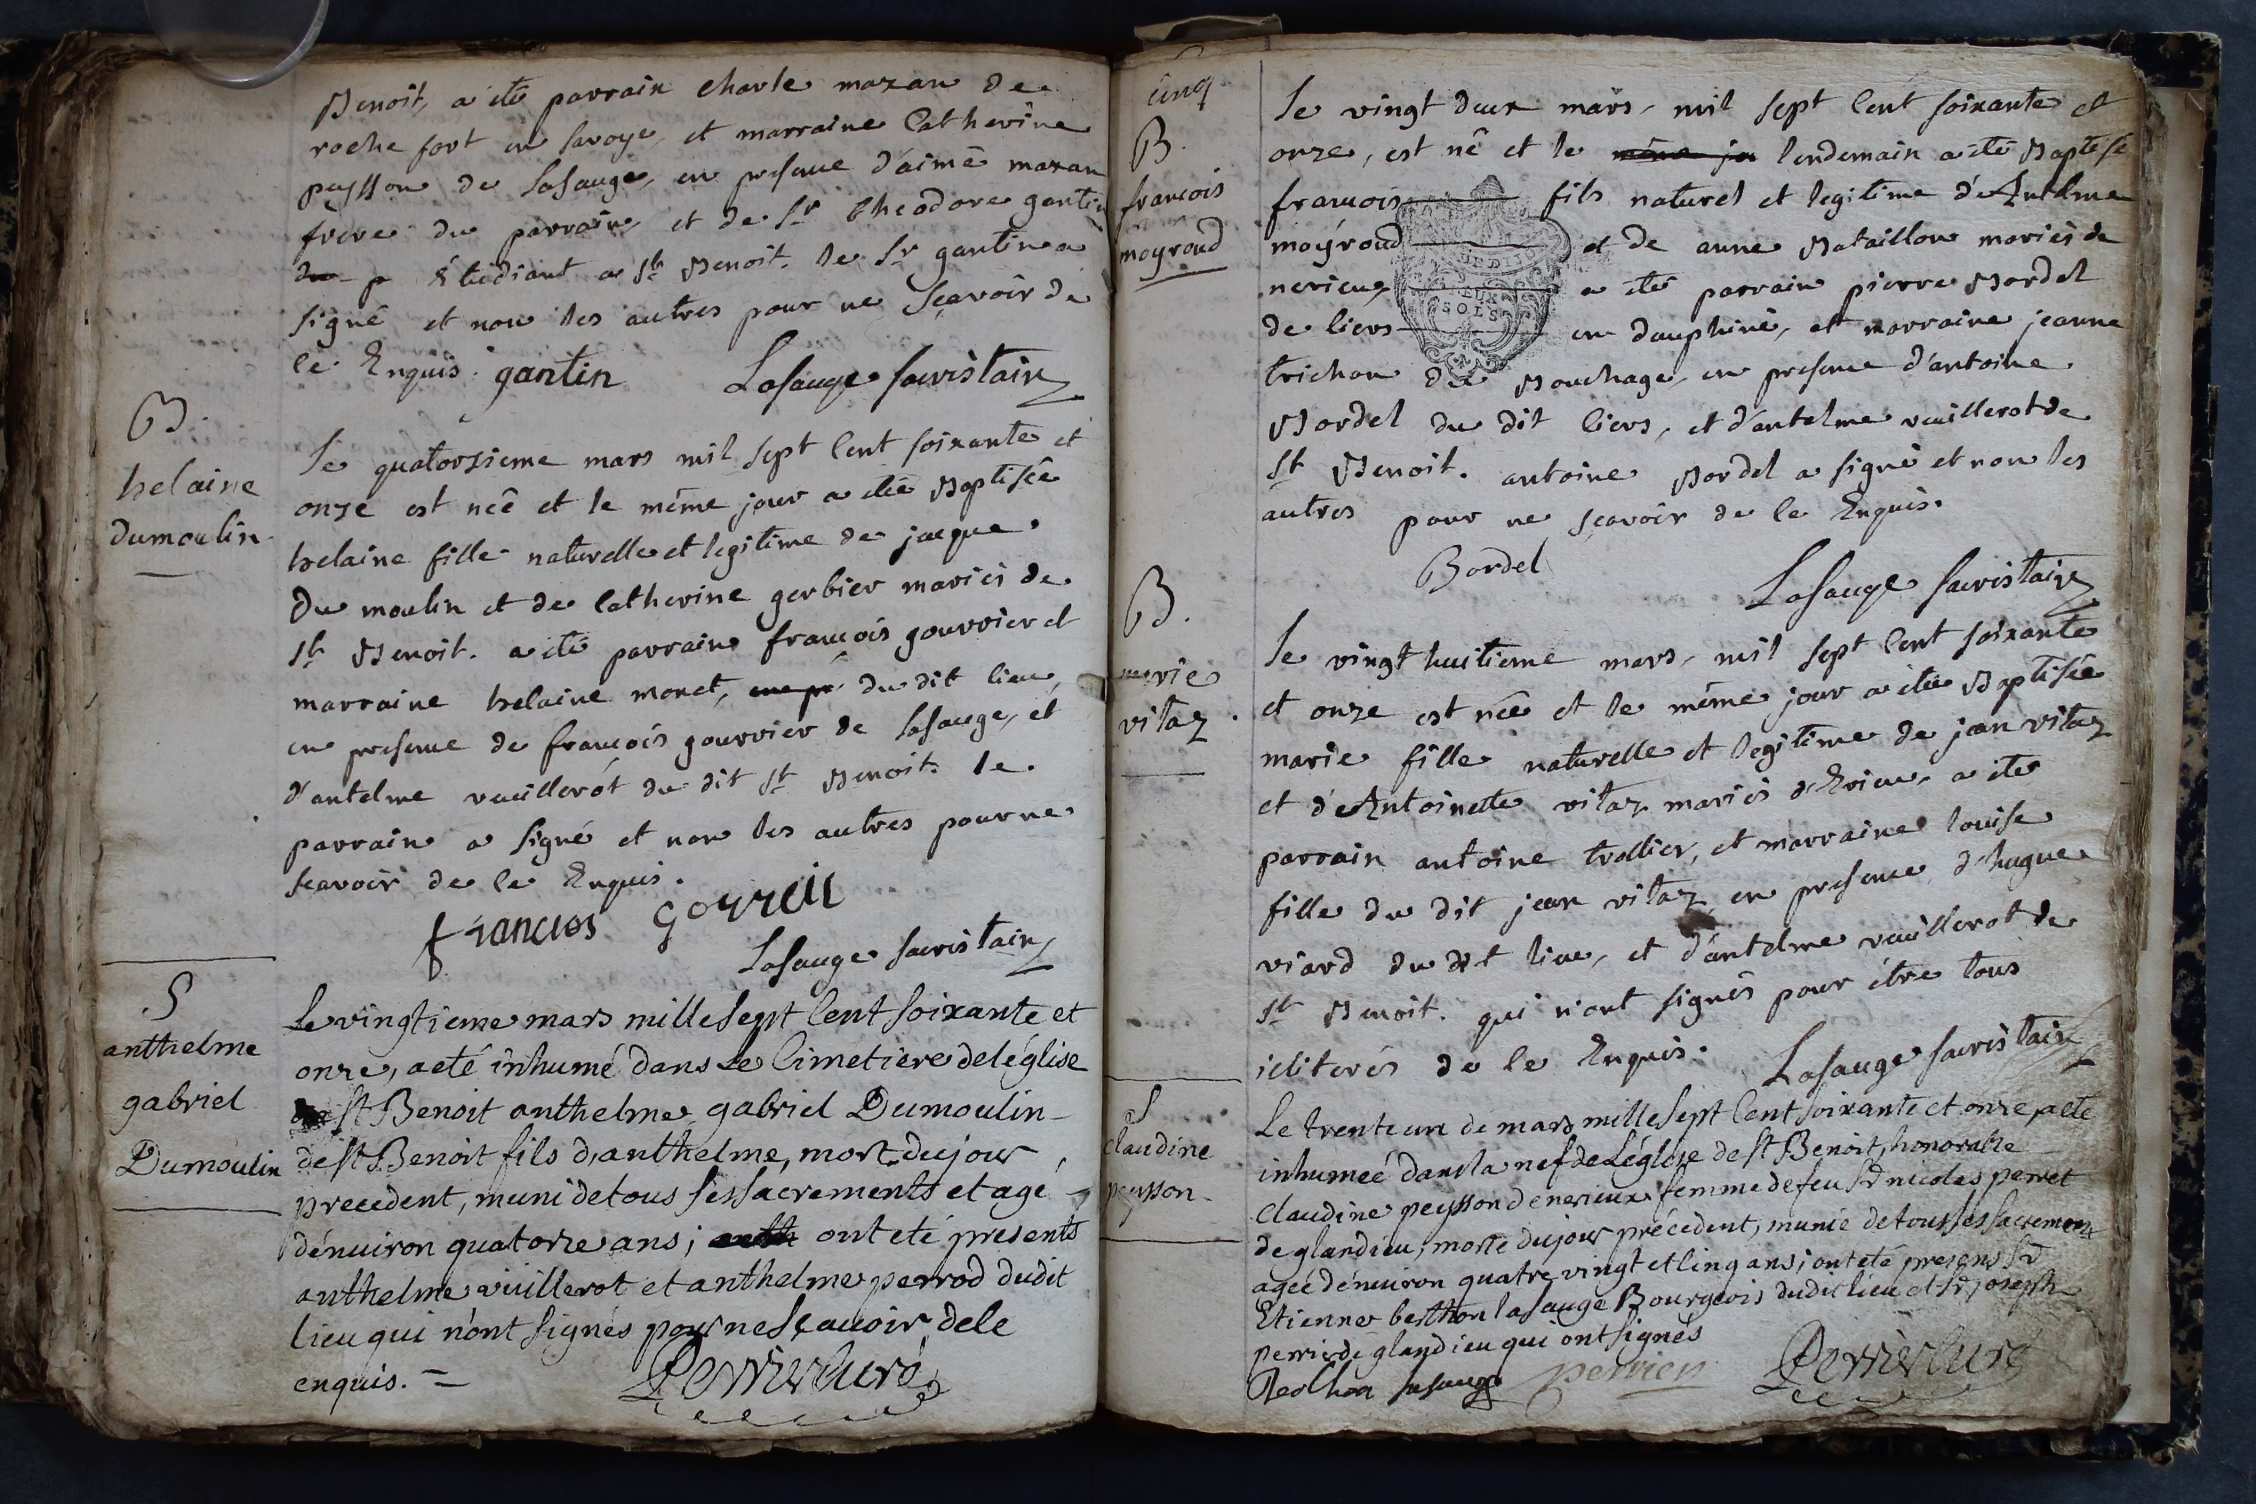 Benoit, a eté parrain charle mazan de
roche fort en savoye, et marraine Catherine
peysson de Lasauge, en presence d'aimé mazan
frere du parrain, et de Sr theodore gantin
Etudiant a St Benoit. le Sr gantin a
signé et non les autres pour ne sçavoir de
ce Enquis. gantin Lasauge sacristain
B.
helaine
dumoulin
Le quatorsieme mars mil sept cent soixante et
onze est neé et le même jour a eté Baptiseé
helaine fille naturelle et legitime de jacque
Du moulin et de Catherine gerbier mariés de
St Benoit. a eté parrain françois gourrier et
marraine helaine monet, du dit lieu,
en presence de françois gourrier de Lasauge, et
d'antelme vuillerot du dit St Benoit. le
parrain a signé et non les autres pour ne
scavoir de ce Enquis.
francios
Lasauge sacristain
S
anthelme
gabriel
Dumoulin
Le vingtieme mars mille sept cent soixante et
onze, a eté inhumé dans Le Cimetiere de léglise
de St Benoit anthelme gabriel Dumoulin
de St Benoit fils d'anthelme, mort du jour
precedent, muni de tous ses sacrements et agé
dénuiron quatorze ans; ont eté presents
anthelme vuillerot et anthelme perrod dudit
lieu qui n'ont signés pour ne Sçavoir, de ce
enquis. =
Perrier Curé
cinq
B.
francois
moyroud
Le vingt deux mars, mil sept cent soixante et
onze, est né et le lendemain a eté Baptisé
francois fils naturel et legitime d'Antelme
moyroud et de anne Bataillon mariés de
nerieu, a eté parrain pierre Bordel
de Ciers en dauphiné, et marraine jeanne
trichon De Bouchage, en presence d'antoine
Bordel du dit Ciers, et d'antelme vuillerot de
St Benoit. antoine Bordel a signé et non les
autres pour ne sçavoir de ce Enquis.
Bordel
Lasauge sacristain
B.
marie
vitaz
Le vingt huitieme mars, mil sept cent soixante
et onze est neé et le même jour a eté Baptiseé
marie fille naturelle et legitime de jean vitaz
et d'Antoinette vitaz mariés d'Evieu, a eté
parrain antoine trollier, et marraine louise
fille du dit jean vitaz, en presence d'hugue
viard du dit lieu, et d'antelme vuillerot de
St Benoit. qui n'ont signés pour être tous
iclitérés de ce Enquis.
Lasauge sacristain
S
claudine
peysson
Le trente un de mars mille sept cent soixante et onze, a eté
inhumeé dans la nef de Léglise de St Benoit, honorable
Claudine peysson de nerieux femme de feu Sr nicolas perret
de glandieu, morte du jour précedent, munie de tous ses sacremens
ageé dénuiron quatre vingt et cinq ans; ont eté presens Sr
Etienne berthon lasauge Bourgeois dudit lieu et Sr joseph
perrier de glandieu qui ont signés
Berthon lasauge perrier Perrier Curé